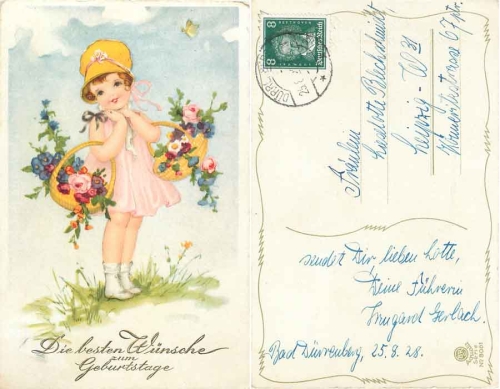 Die besten Wünsche
zum
Geburtstage
8 8
Deutsches Reich
Fräulein
Liselotte Blechschmidt,
Leipzig - W 31
67 ptr.
sendet Dir, lieben Lotte,
Deine Führerin
Irmgard Gerlach.
Bad Dürrenberg, 25.9.28.
Serie